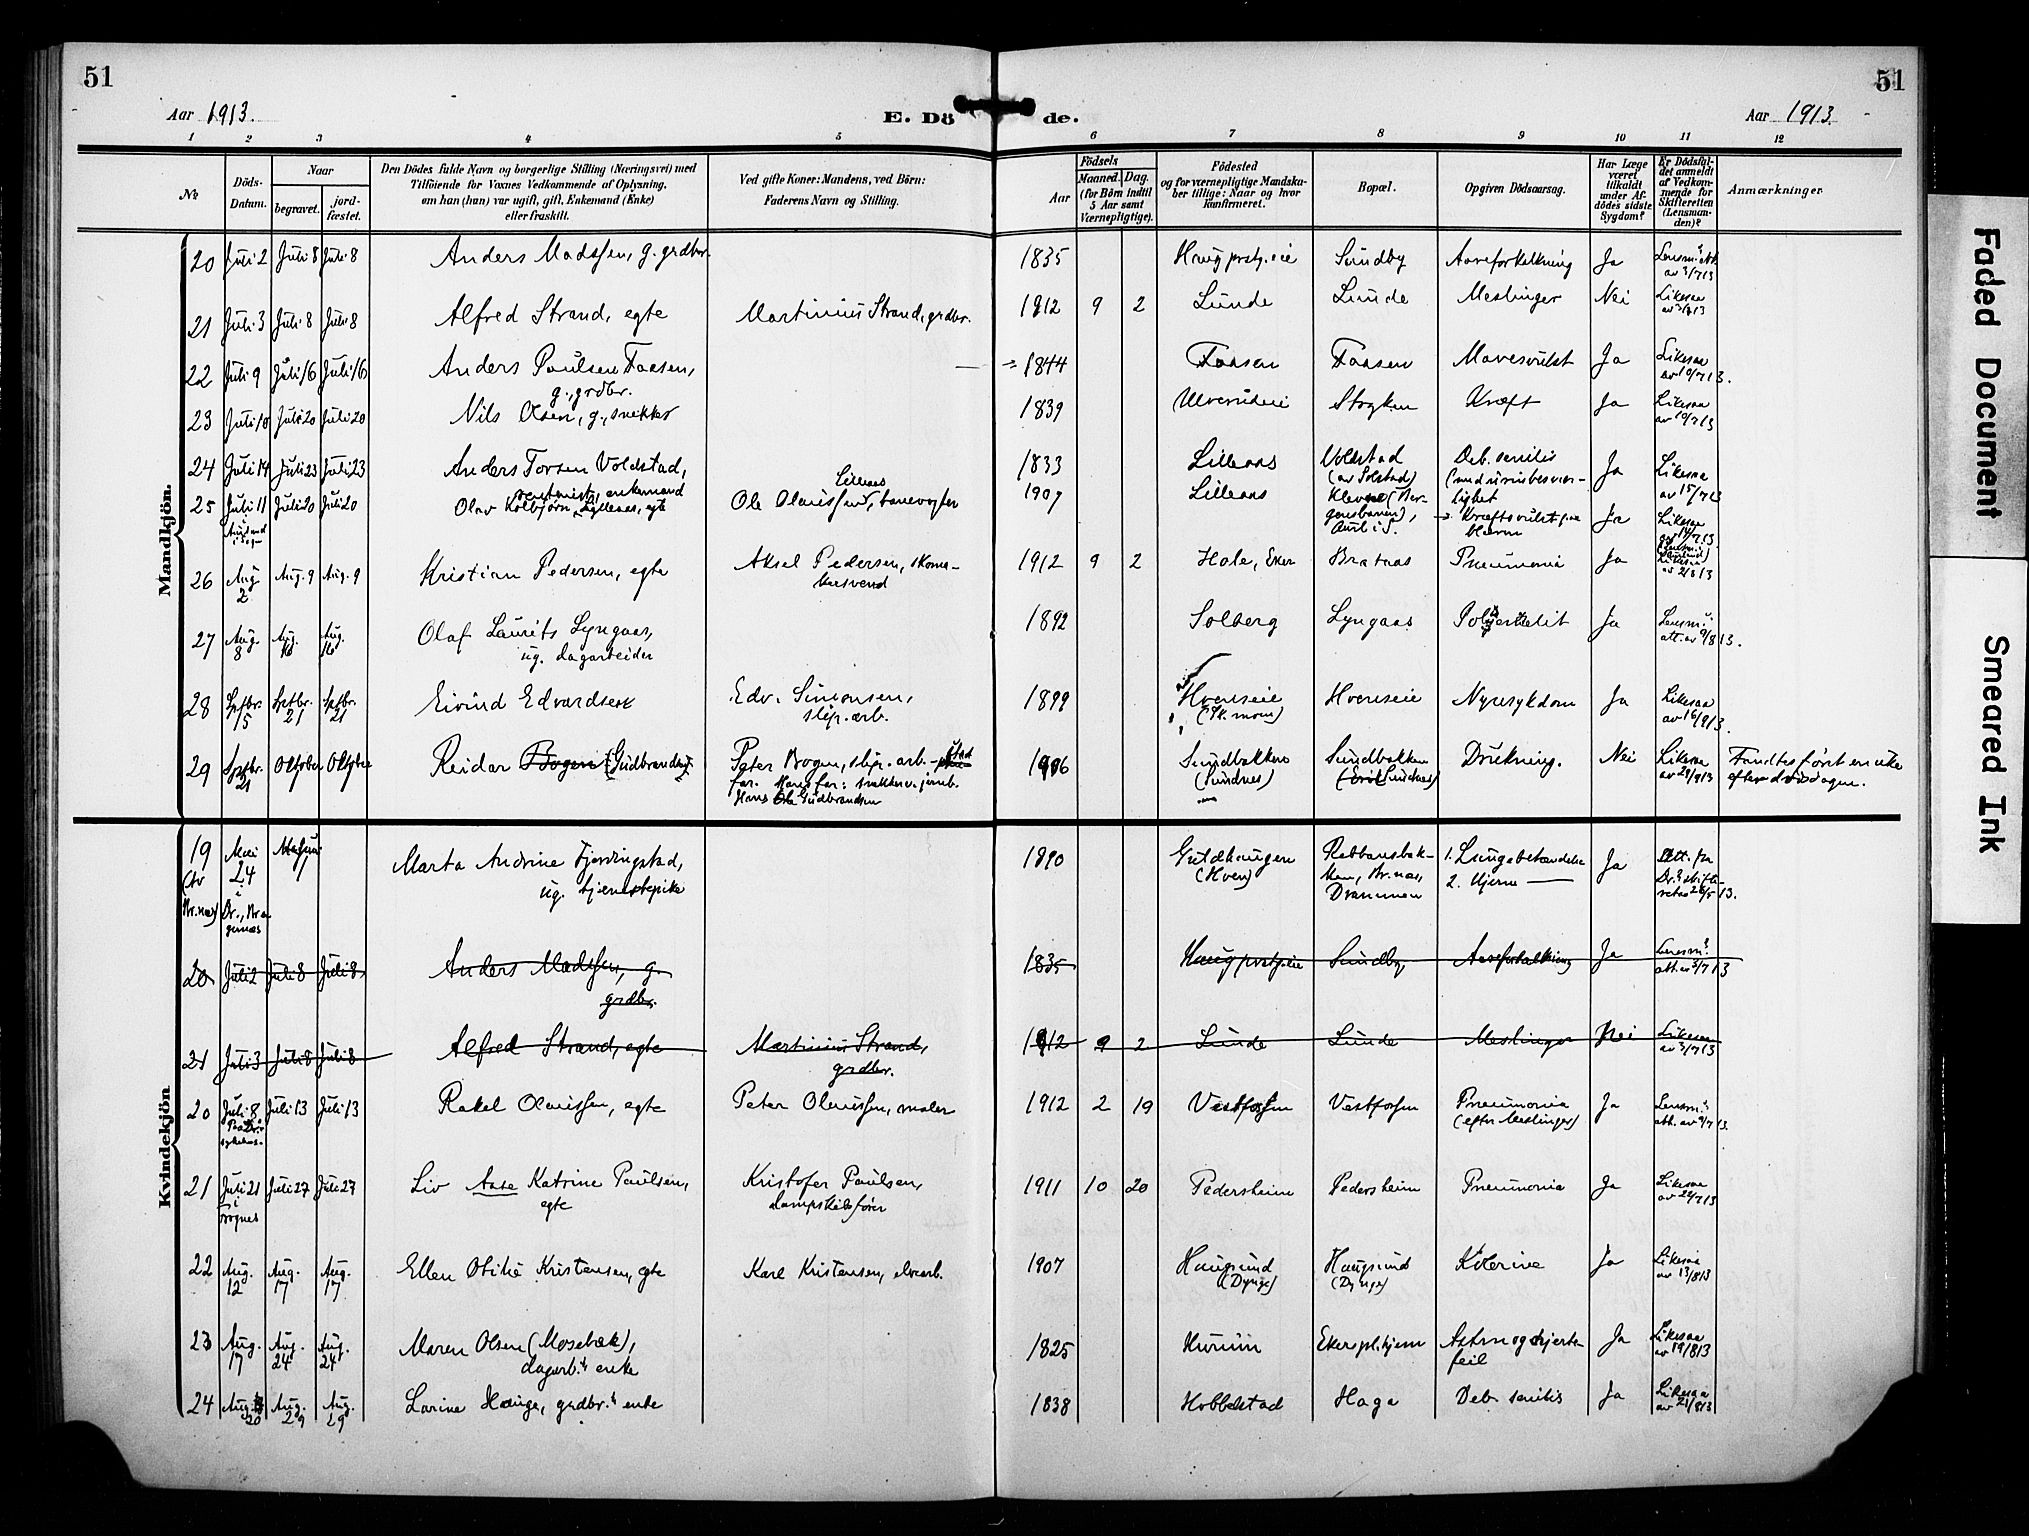 51
51
Aar 1913.
E. Döde.
Aar 1913.
1 2 3 4 5 6 7 8 9 10 11 12
No
Döds-Datum.
Naar
begravet.
jord-fæstet.
Den Dödes fulde Navn og borgerlige Stilling (Næringsvei) med
Tilföiende for Voxnes Vedkommende af Oplysning,
om han (hun) var ugift, gift, Enkemand (Enke)
eller fraskilt.
Ved gifte Koner: Mandens, ved Börn:
Faderens Navn og Stilling.
Födsels
Aar
Maaned. Dag.
(for Börn indtil
5 Aar samt
Værnepligtige).
Födested
og for værnepligtige Mandska-
ber tillige: Naar og hvor
Konfirmeret.
Bopæl.
Opgiven Dödsaarsag.
Har Læge
været
tilkaldt
under Af-
dödes sidste
Sygdom?
Er Dödsfal-
det anmeldt
af Vedkom-
mende for
Skifteretten
(Lensman-
den)?
Anmærkninger.
Mandkjön.
20 Juli 2 Juli 8 Juli 8 Anders Madssen, g. grdbr. 1835 Haug prstg. eie Sundby Aareforkalkning Ja Lensm.s att. av 3/7 13
21 Juli 3 Juli 8 Juli 8 Alfred Strand, egte Martinius Strand, grdbr. 1912 9 2 Lunde Lunde Meslinger Nei Likesaa av 3/7 13
22 Juli 9 Juli 16 Juli 16 Anders Paulsen Faasen, g., grdbr. 1844 Faasen Faasen Mavesvulst Ja Likesaa av 10/7 13.
23 Juli 10 Juli 20 Juli 20 Nils Olsen, g., snekker 1839 Ulverudeie Stryken Kræft Ja Likesaa av 10/7 13
24 Juli 14 Juli 23 Juli 23 Anders Torsen Voldstad, enkemand 1833 Lilleaas Voldstad (av Solstad) Deb. senilis (med urinbesværlighet Ja Likesaa av 15/7 13
25 Juli 11 Juli 20 Juli 20 Olav Kolbjørn Lilleaas, egte Ole Olaussen Lilleaas, banevogter 1907 Lilleaas Klevene (Bergensbanen), Aurl. i S. Kræftsvulst paa blæren Ja Likesaa av 14/7 13
26 Aug. 2 Aug. 9 Aug. 9 Kristian Pedersen, egte Aksel Pedersen, skomakersvend 1912 9 2 Hole, Eker Brataas Pneumoni Ja Likesaa av 2/8 13
27 Aug. 8 Aug. 16 Aug. 16 Olaf Laurits Lyngaas, ug. dagarbeider 1892 Solberg Lyngaas Ja Lensm.s att. av 9/8 13.
28 Septbr. 15 Septbr. 21 Septbr. 21 Eivind Edvardsen Edv. Simonsen, slip. arb. 1899 Hvenseie (Sk. moen) Hvenseie Nyresykdom Ja Likesaa av 16/9 13.
29 Septbr. 21 Oktober Oktober Reidar Bogen (Gudbrandsen). Peter Bogen, slip. arb. - far. Mors far: snekker v. jernb. Hans Ole Gudbrandsen 1906 Sundbakken (Sundnes) Sundbakken (Sundnes) Drukning. Nei Likesaa av 29/9 13 Fandtes først en uke efter dødsdagen.
Kvindekjön
19 (Av Br.næs) Mai 24 i Dr., Bragernæs Marta Andrine Fjerdingstad, ug. tjenestepike 1890 Guldhaugen (Hven) Rebbansbakken, Br.næs, Drammen 1. Lungebetændelse 2. Hjerne — Ja Att. fra Dr.s skifteret av 26/5 13.
20 Juli 2 Juli 8 Juli 8 Anders Madssen, g. grdbr. 1835 Haug prstg. eie Sundby Aareforkalkning Ja Lensm.s att. av 3/7 13
21 Juli 3 Juli 8 Juli 8 Alfred Strand, egte Martinius Strand, grdbr. 1912 9 2 Lunde Lunde Meslinger Nei Likesaa av 3/7 13
20 Juli 8 Paa Dr. sykehus. Juli 13 Juli 13 Rakel Olaussen, egte Peter Olaussen, maler 1912 2 19 Vestfossen Vestfossen Pneumonia (efter Meslinger) Ja Lensm.s att. av 9/7 13.
21 Juli 21 i Sognes Juli 27 Juli 27 Liv Aase Katrine Paulsen, egte Kristofer Paulsen, dampskibsfører 1911 10 20 Pedersheim Pedersheim Pneumonia Ja Likesaa av 22/7 13
22 Aug. 12 Aug. 17 Aug. 17 Ellen Otilie Kristensen, egte Karl Kristensen, elvearb. 1907 Haugsund (Dynge) Haugsund (Dynge) Kolerine Ja Likesaa av 13/8 13
23 Aug. 17 Aug. 24 Aug. 24 Maren Olsen (Mosebæk), dagarb.s enke 1825 Hurum Ekers plhjem Astm og hjertefeil Ja Likesaa av 19/8 13
24 Aug. 20 Aug. 29 Aug. 29 Larine Hauge, grdbr.s enke 1838 Hobbelstad Haga Deb. senilis Ja Likesaa av 21/8 13
Faded Document
Smeared Ink